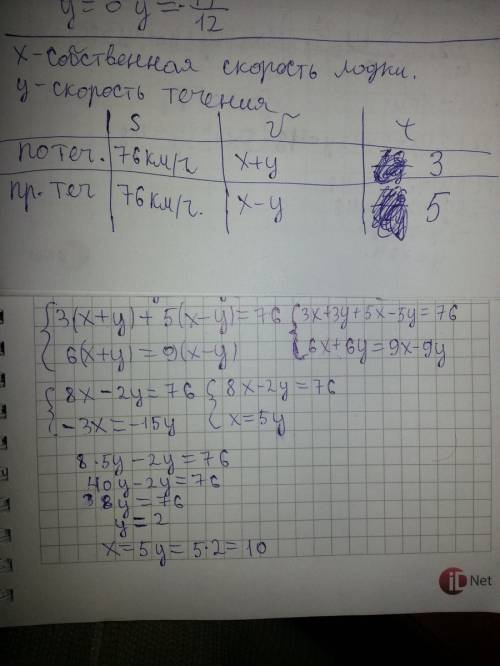 y=0 y=-11/12
x-собственная скорость лодки.
y-скорость течения
S V t
по теч. 76км/ч x+y 3
пр. теч 76км/ч. x-y 5
{3(x+y)+5(x-y)=76 {3x+3y+5x-5y=76
6(x+y)=9(x-y) 6x+6y=9x-9y
{8x-2y=76 {8x-2y=76
-3x=-15y x=5y
8·5y-2y=76
40y-2y=76
38y=76
y=2
x=5y=5·2=10
iD Net